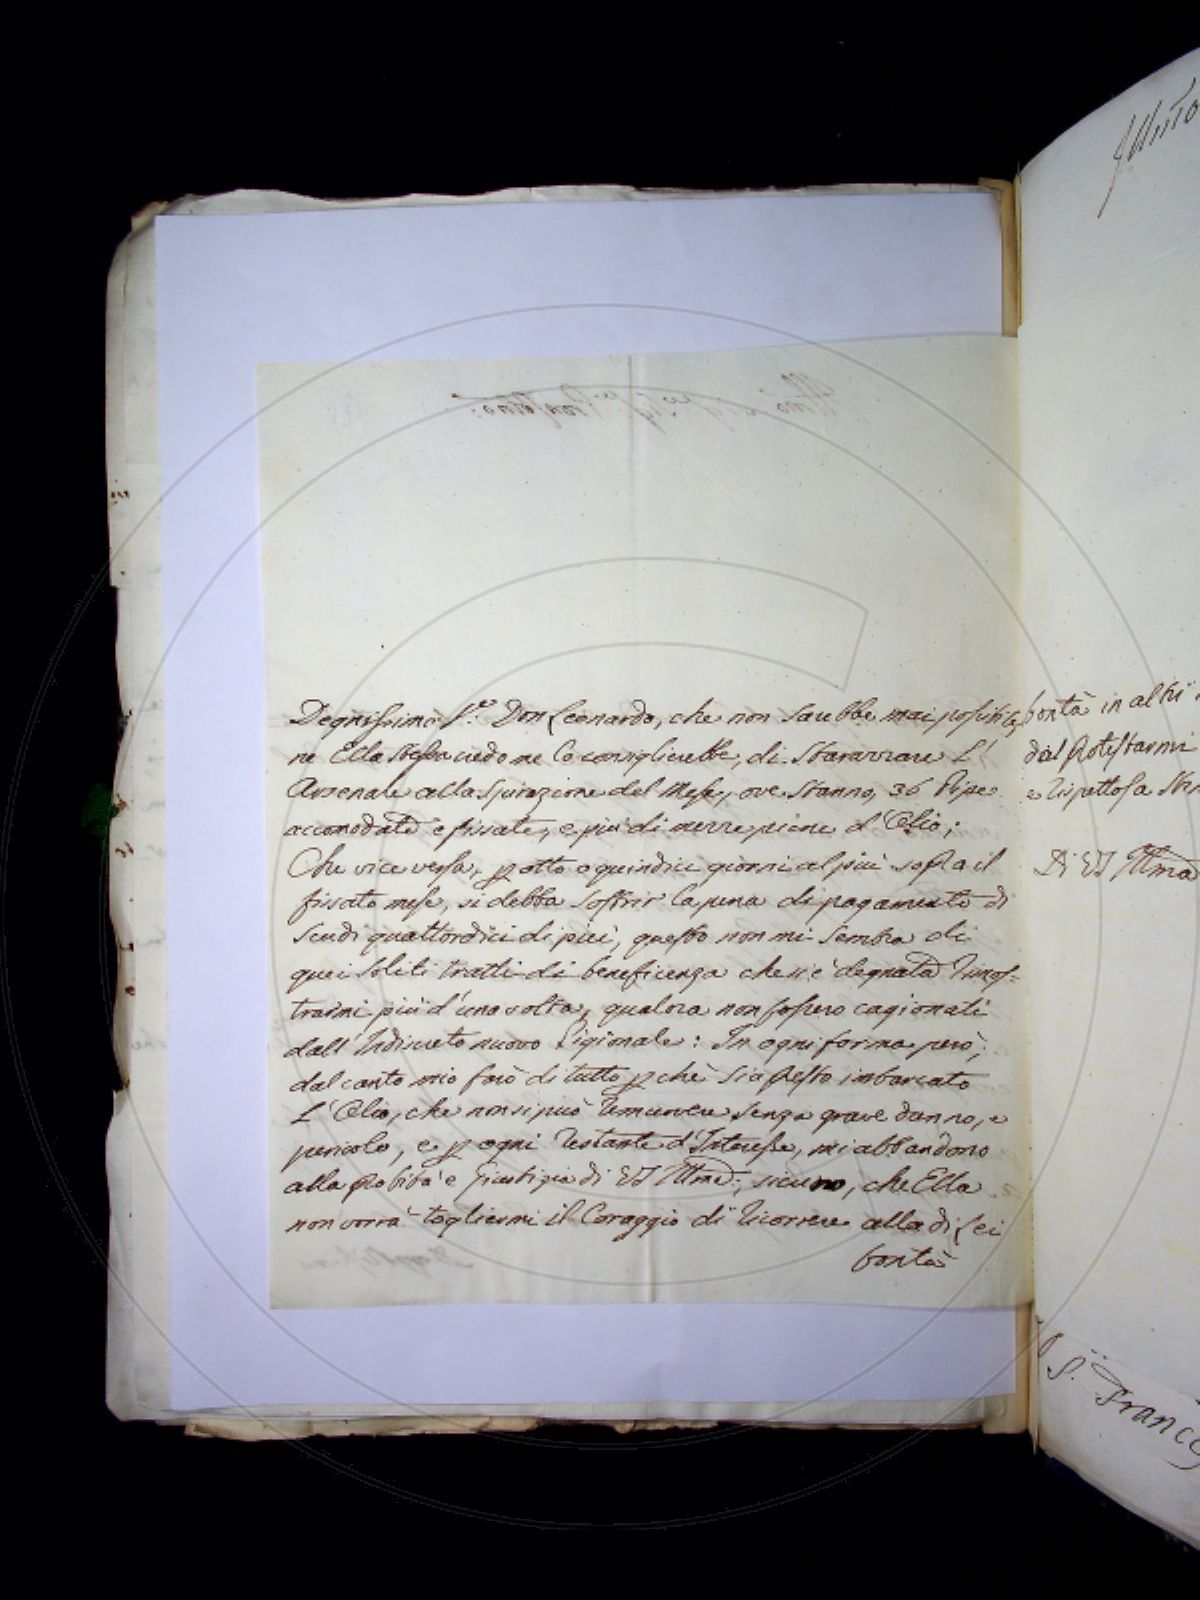 Degnissimo S.re Don Leonardo, che non sarebbe mai possibile,
ne Ella stessa credo me lo consiglierebbe, di sbarazzare L'
Arsenale alla spirazione del Mese, ove stanno, 36 Pipe
accomodate e fissate, e più di mezze piene d'Olio;
Che vice versa, p otto o quindici giorni al più sopra il
fissato mese, si debba soffrir la pena di pagamento di
scudi quattordici di più, questo non mi sembra di
quei soliti tratti di beneficenza che s'è degnata dimos=
trarmi più d'una volta, qualora non fossero cagionati
dall'Indiscreto nuovo Pigionale: In ogni forma però,
dal canto mio farò di tutto p chè sia presto imbarcato
L'Olio, che non si può rimuovere senza grave danno, e
pericolo, e p ogni restante d'Interesse, mi abbandono
alla probità e Giustizia di VS Illma:, sicuro, che Ella
non vorrà togliermi il Coraggio di ricorrere alla di Lei
bontà
bontà in altri
dal Protestarmi
e rispettosa
Di VS Illma
S. Franc